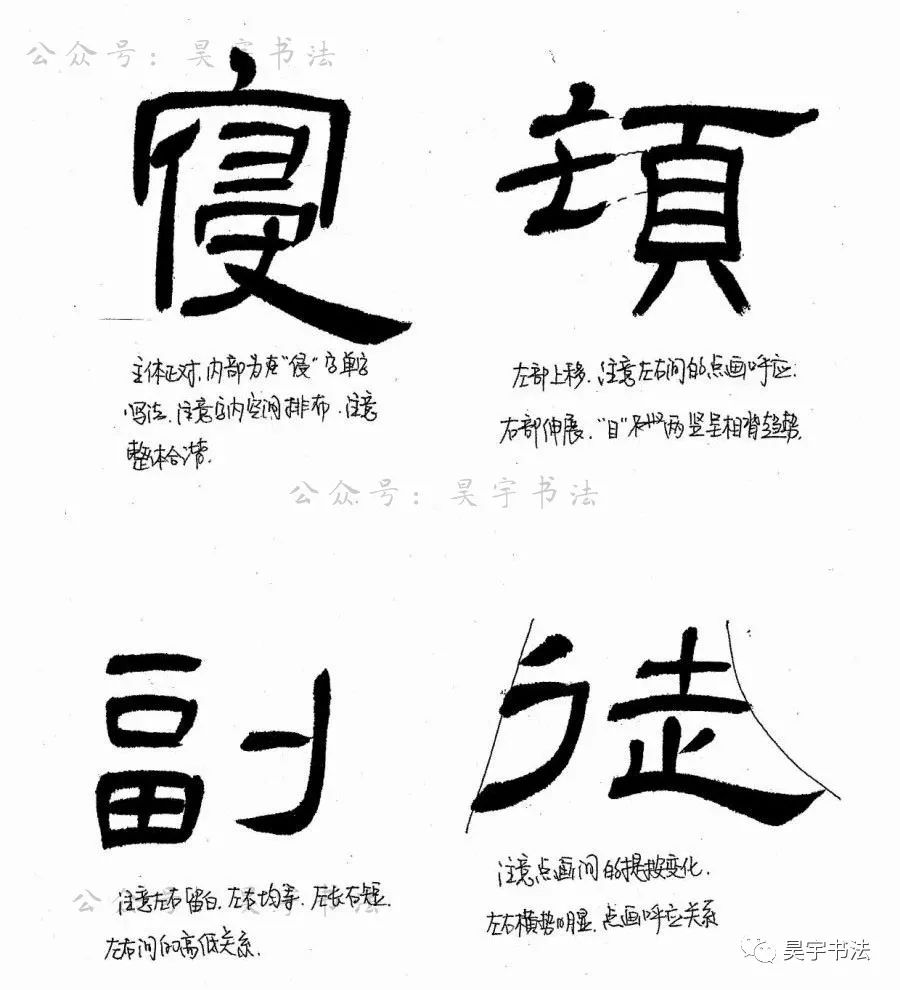 公众号：昊宇书法
寝 頓
主体正对，内部为左"侵"字单字
写法，注意字内空间排布，注意
整体合谐。
左部上移，注意左右间的点画呼应；
右部伸展，"目"两竖呈相背趋势。
公众号：昊宇书法
副 徒
注意左右留白，左右均等，左长右短，
左右间的高低关系。
注意点画间的提按变化，
左右横势明显，点画呼应关系
公众号：昊宇书法
昊宇书法